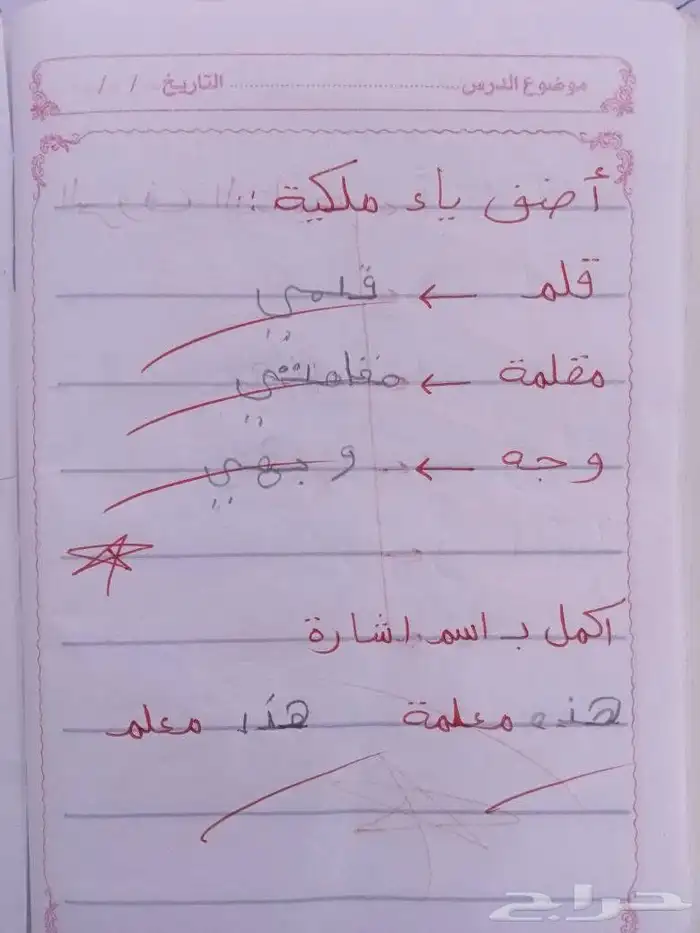 موضوع الدرس ........ التاريخ / /
أضف ياء ملكية :
قلم ← قلمي
مقلمة ← مقلمتي
وجه ← وجهي
اكمل بـ اسم اشارة
هذه معلمة هذا معلم
حراج